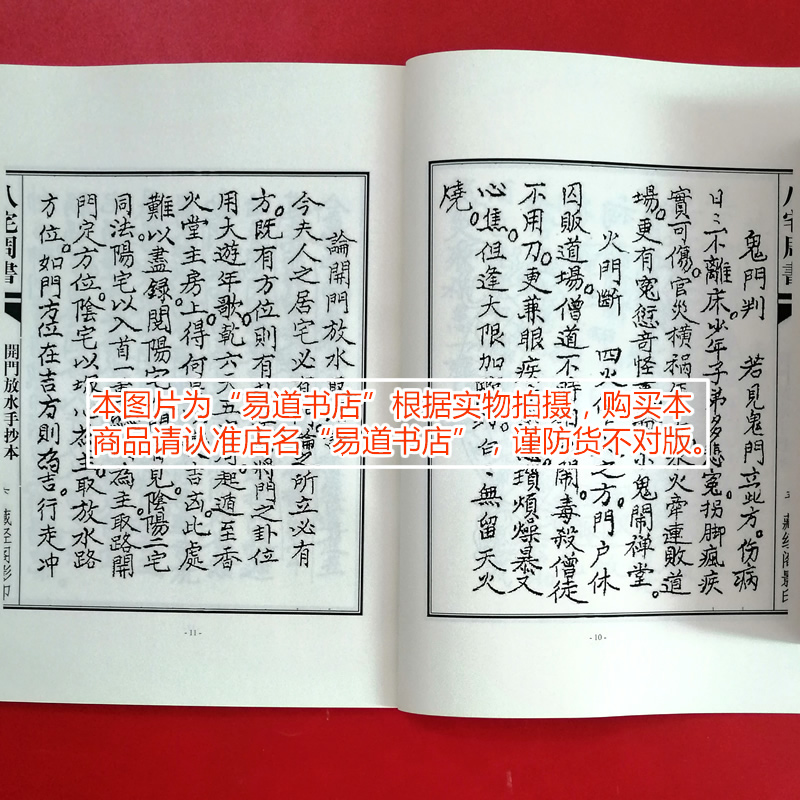 鬼門判　若見鬼門立此方。傷病
日三不離床。少年子弟多悲冤。拐脚瘋疾
實可傷。官災橫禍 水火牽連敗道
場。更有冤愆奇怪 小鬼鬧禅堂。
火門斷　四火 之方門户休
囚販道場。僧道不時 鬧。毒殺僧徒
不用刀。更兼眼疾 瑣煩。燥暴又
心焦。但逢大限加臨 無留天火
燒。
- 10 -
八宅周書
藏经阁影印
論開門放水
今夫人之居宅必 論之所立必有
方。既有方位則有 將門之卦位
用大遊年歌。乾六天五 起遁至香
火堂主房。上得何 吉凶。此處
難以盡錄。閱陽宅 見。陰陽二宅
同法。陽宅以入首一 為主。取路開
門定方位。陰宅以 為主。取放水路
方位。如門方位在吉方則為吉。行走冲
- 11 -
八宅周書
開門放水手抄本
藏经阁影印
本图片为“易道书店”根据实物拍摄，购买本
商品请认准店名“易道书店”，谨防货不对版。